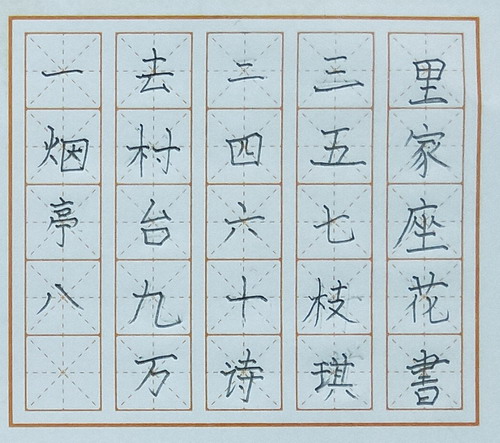 一去二三里
烟村四五家
亭台六七座
八九十枝花
万诗琪書